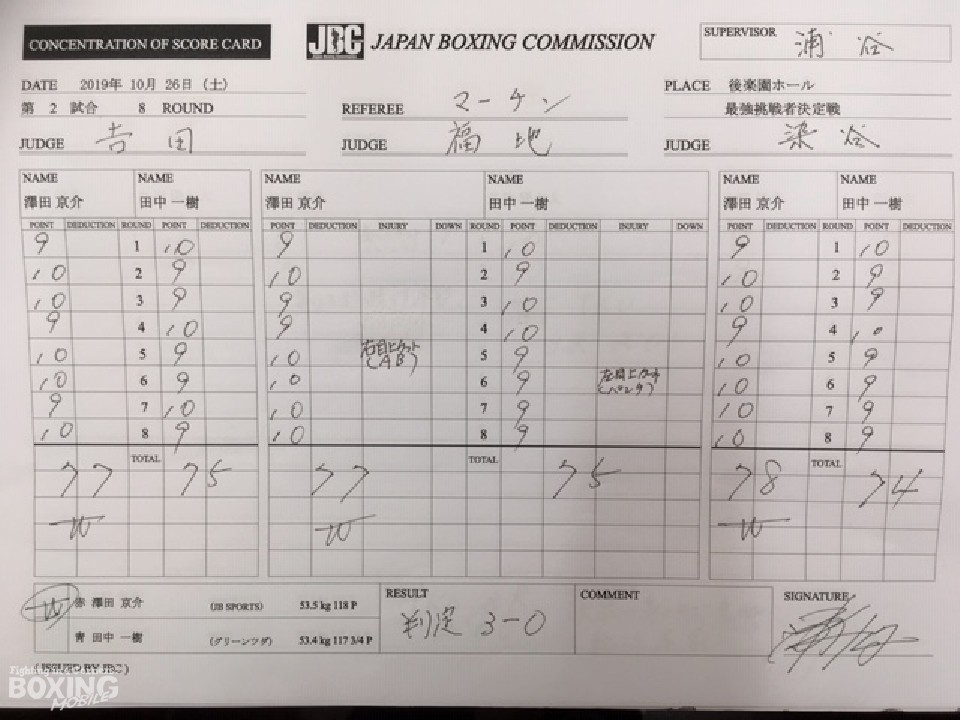 CONCENTRATION OF SCORE CARD
JBC JAPAN BOXING COMMISSION
SUPERVISOR 浦谷
DATE 2019年 10月 26日 (土)
PLACE 後楽園ホール
第 2 試合 8 ROUND
REFEREE マーチン
最強挑戦者決定戦
JUDGE 吉田
JUDGE 福地
JUDGE 染谷
NAME NAME NAME NAME NAME NAME
澤田 京介 田中 一樹 澤田 京介 田中 一樹 澤田 京介 田中 一樹
POINT DEDUCTION ROUND POINT DEDUCTION POINT DEDUCTION INJURY DOWN ROUND POINT DEDUCTION INJURY DOWN POINT DEDUCTION ROUND POINT DEDUCTION
9 1 10 9 1 10 9 1 10
10 2 9 10 2 9 10 2 9
10 3 9 9 3 10 10 3 9
9 4 10 9 4 10 9 4 10
10 5 9 10 右目上カット (AB) 5 9 10 5 9
10 6 9 10 6 9 左目上カット (パンチ) 10 6 9
9 7 10 10 7 9 10 7 9
10 8 9 10 8 9 10 8 9
TOTAL TOTAL TOTAL
77 75 77 75 78 74
W W W
W 赤 澤田 京介 (JB SPORTS) 53.5 kg 118 P
青 田中 一樹 (グリーンツダ) 53.4 kg 117 3/4 P
RESULT
判定 3-0
COMMENT
SIGNATURE
(ISSUED BY JBC)
BOXING
MOBILE